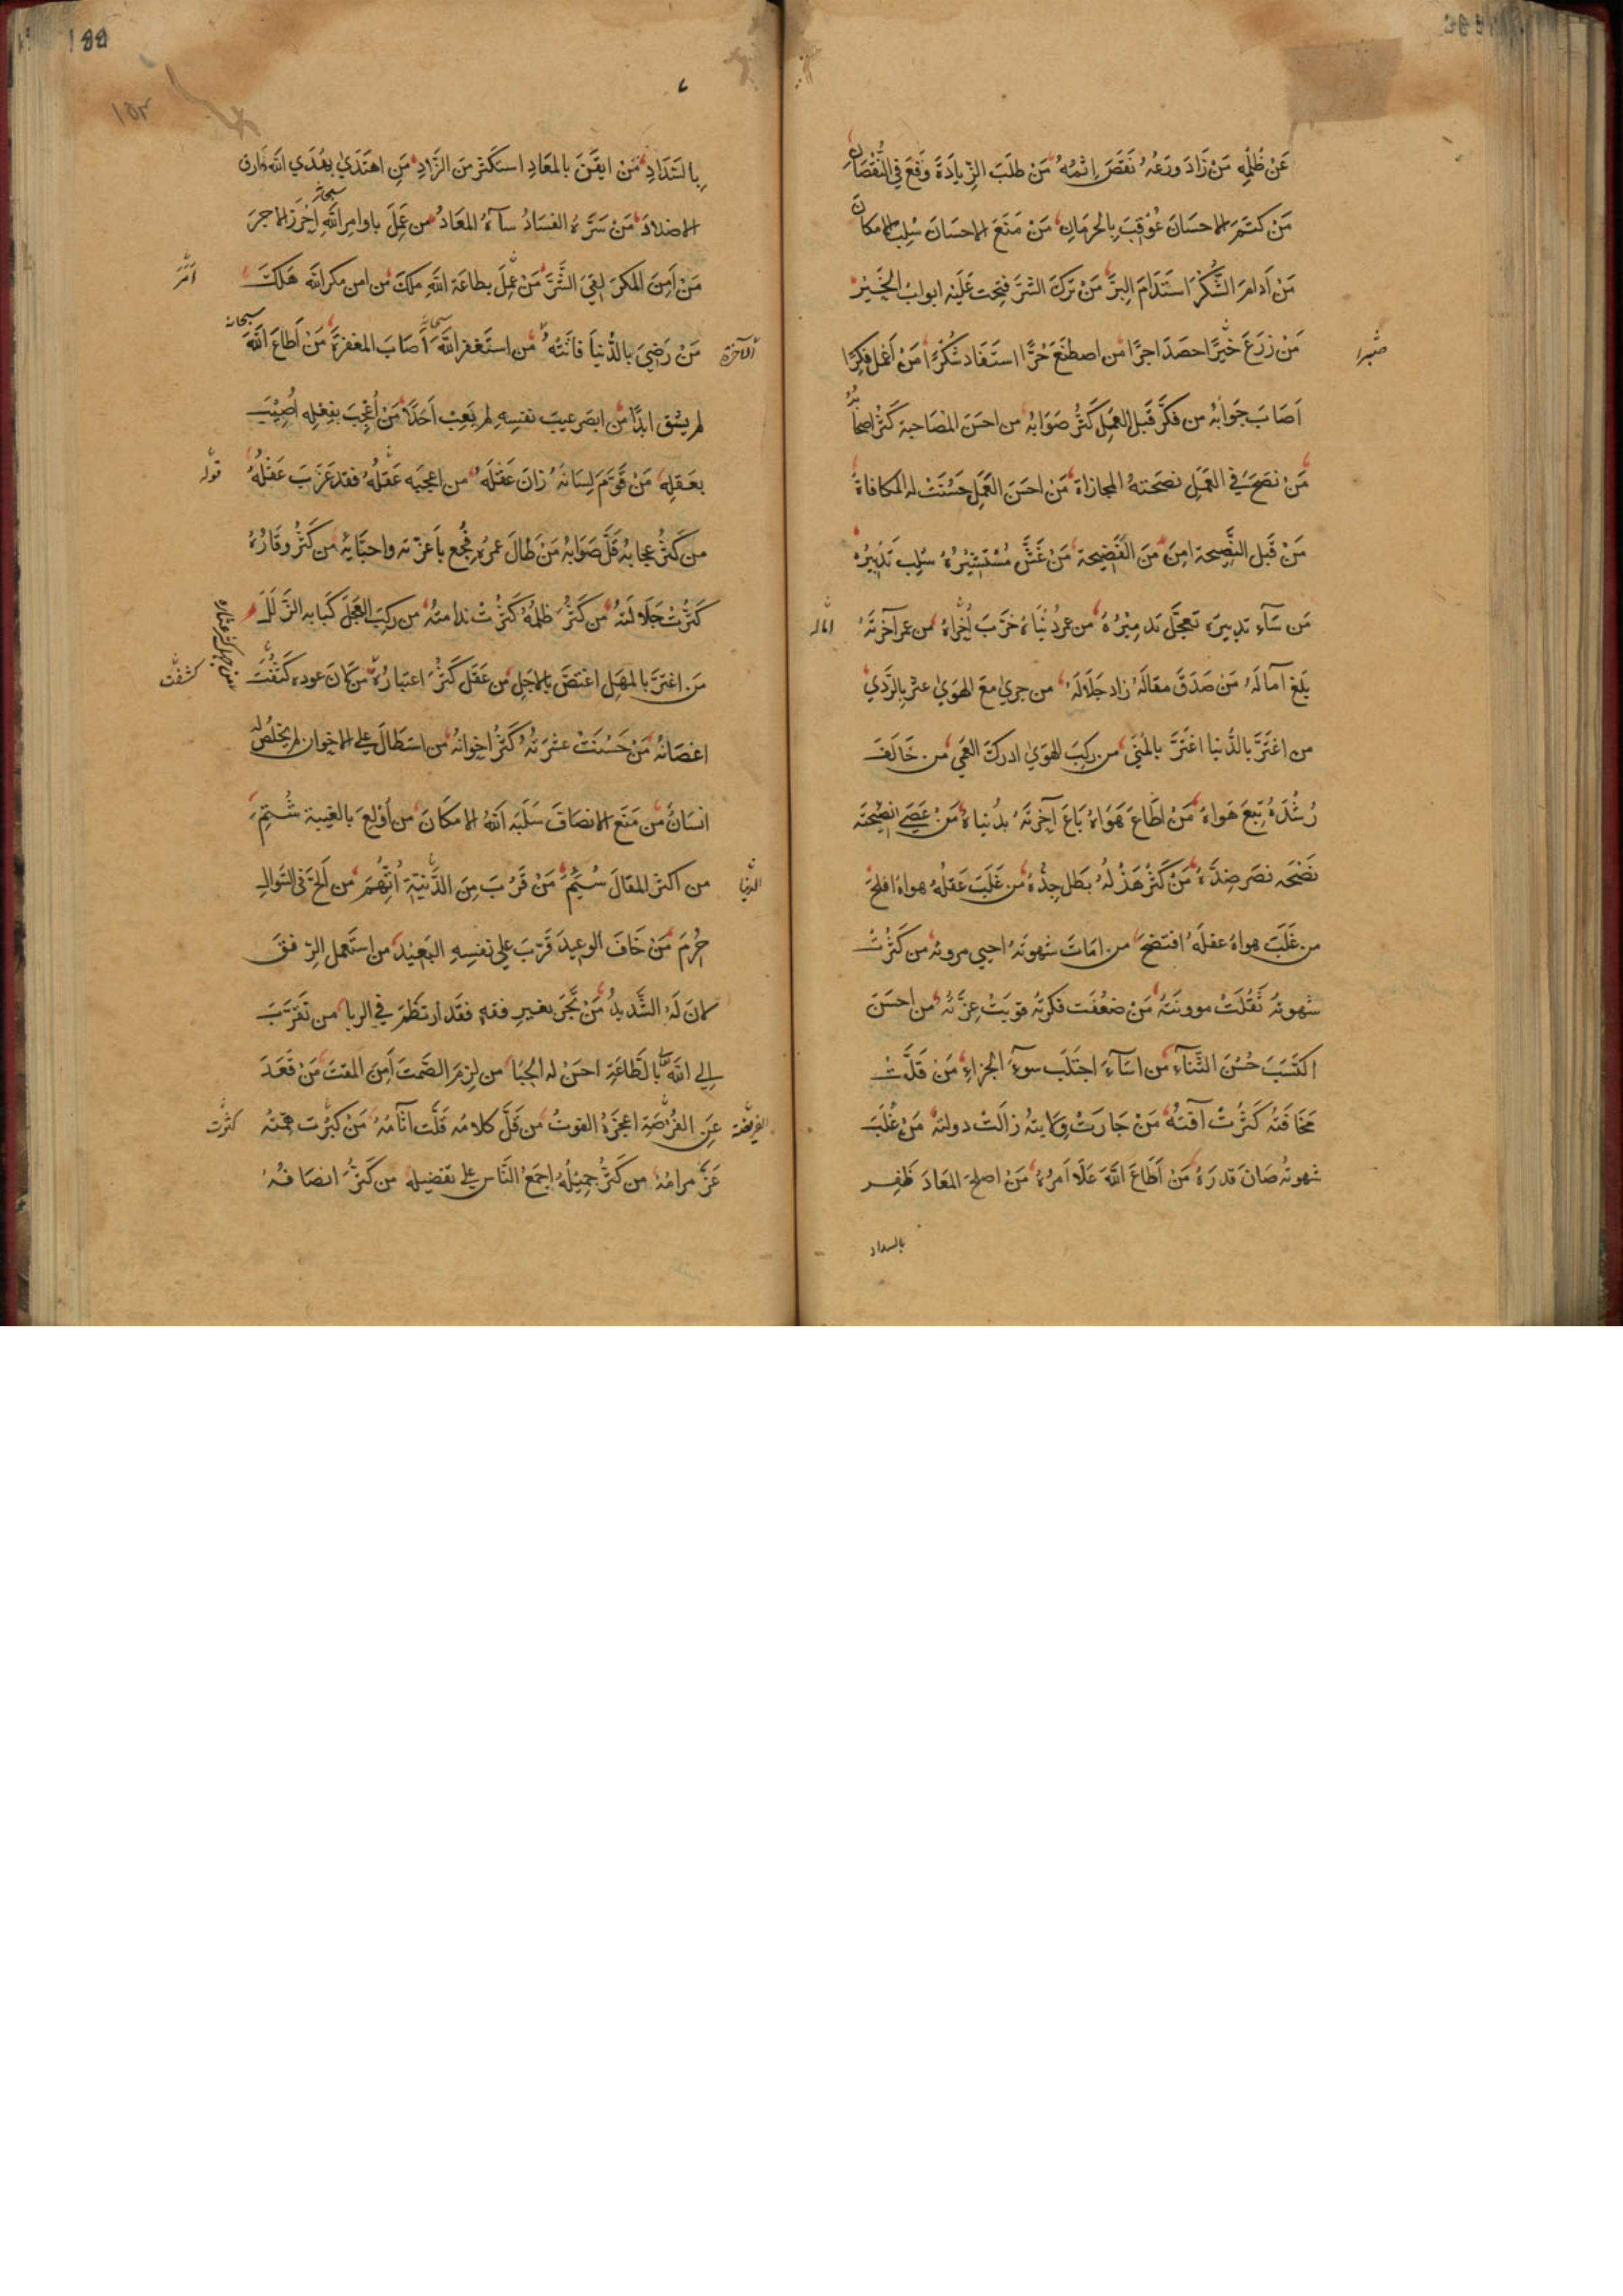 عَنْ ظُلْمِهِ مَنْ زَادَ وَرَعُهُ نَقَصَ اِثْمُهُ مَنْ طَلَبَ الزِّيَادَةَ وَقَعَ فِي النُّقْصَانِ
مَنْ كَتَمَ الاحسَانَ عُوْقِبَ بِالحرمَانِ مَنْ مَنَعَ الاحسَانَ سُلِبَ الامكانَ
مَنْ أَدَامَ الشُّكْرَ اسْتَدَامَ البِرَّ مَنْ تَرَكَ الشرَّ فتِحت عَلَيْهِ ابوابُ الخَيْر
صَبْرا
مَنْ زَرَعَ خَيْرًا حصَدَ اجرًا من اصطنَعَ حُرًّا استَفَاد شُكْرًا مَنْ أَعْمَل فِكرًا
اَصَابَ جَوَابُه من فكَّر قَبلَ العَمَلِ كَثُر صَوَابُهُ من احسَنَ المصَاحبة كَثُر اصحَابُهُ
مَنْ نَصَحَ في العَمَلِ نصَحَتهُ المجازاة مَنْ احسَنَ العَمَلَ حَسُنَتْ له المكافاةُ
مَنْ قَبِلَ النَّصِيحة امِنَ مِنَ الفَضِيحة مَنْ غَشَّ مُسْتَشِيْرَهُ سُلِبَ تَدْبِيرَهُ
مَن سَآءَ تدبِيرَه تعجَّل تدمِيْرُهُ من عمرَ دُنْيَاهُ خرَّبَ اُخْرَاهُ من عمر آخرتَهُ
بلغ آمالَهُ مَنْ صَدَقَ مقالَهُ زاد جَلَالَهُ من جري مَعَ الهوَيٰ عثرَ بِالرَّدَيٰ
من اغتَرَّ بالدُّنيا اغتَرَّ بالمُنَي من ركِبَ الهوَيٰ ادركَ العَمَي من خَالَفَ
رُشْدَهُ تَبِعَ هَوَاهُ مَنْ اَطَاعَ هَوَاهُ بَاعَ آخِرتَهُ بدُنيَاهُ مَنْ عَصَي نصيْحَتَه
نَصْحَه نصَر ضِدَّهُ مَنْ كَثُر هَزْلُهُ بَطَل جِدُّهُ من غَلَبَ عَقلُهُ هواهُ افلَحَ
من غَلَبَ هواهُ عقلَهُ افتَضَحَ من امَاتَ شهوتَهُ احيي مروته من كَثُرَتْ
شهوتهُ ثَقُلَتْ موونَتُهُ مَنْ ضعُفَت فكرتُهُ قويَتْ غِرَّتُهُ من احسَنَ
اكتَسَبَ حُسْنَ الثَّنَآءِ من اسَآءَ اجتَلَبَ سوءَ الجزاءِ مَنْ قَلَّتْ
مخَافَتُهُ كَثُرَتْ آفَتُهُ مَنْ جَارَتْ وِلايتهُ زالَتْ دولته مَنْ غَلَبَ
شهوتَهُ صَانَ قدرَهُ مَنْ اَطَاعَ اللهَ عَلَا اَمرُهُ مَنْ اصلَحَ المَعَادَ ظَفِر
بالسداد
بِالسَّدَادِ مَنْ ايقَنَ بالمعَادِ استَكثَرَ مِنَ الزَّادِ مَنِ اهتَدَيٰ بِهُدَي اللهِ فارق
الاضدادَ مَنْ سَرَّهُ الفسَادُ سآءَهُ المَعَادُ من عَمِلَ باوامِرِ اللهِ اَحْرَزَ الاجرَ
مَنْ اَمِنَ المكرَ لقيَ الشَّرَّ مَنْ عَمِلَ بطاعَة اللهِ ملكَ من امن مكرَ الله هَلكَ
مَنْ رَضِيَ بالدُّنيَا فاتَتْهُ من استَغفَر اللهَ اَصَابَ المغفِرَةَ مَنْ اَطاعَ اللهَ
الآخرة
لم يَشْقَ ابدًا من ابصَر عيبَ نفسِهِ لم يَعِبْ اَحَدًا مَنْ اُعْجِبَ بِفِعْلِهِ اُصِيْبَ
بعَقلِهِ مَنْ قَوَّمَ لِسَانَهُ زانَ عَقْلَهُ من اعجبَه عَقلُهُ فقد عَزَبَ عَقْلُهُ
قوله
من كَثُر عجابهُ قَلَّ صَوَابُهُ مَنْ طَالَ عمرُهُ فُجِع باَعزّته واحبَّائه من كَثُر وقارُهُ
كَثُرَتْ جَلَالَتُهُ من كَثُرَ ظلمُهُ كَثُرَتْ ندامتُهُ من ركِبَ العَجَلَ كَبَا به الزَّلَلُ
مَن اغتَرَّ بالمَهَلِ اغتَصَّ بالاجَلِ من عَقَل كَثُرَ اعتبارُهُ من لان عوده كَثُفَتْ
اغصَانهُ مَنْ حَسُنَتْ عشرَتهُ كَثُر اخوانُهُ من استطَالَ علي الاخوان لم يخلُص له
انسَانٌ من مَنَع الانصَافَ سَلَبَه اللهُ الامكَانَ من اُوْلِعَ بالغيبة شُتِمَ
من اكثَر المقالَ سُئِمَ مَنْ قَرُبَ مِنَ الدَّنِيَّةِ اُتُّهِمَ من اَلحَّ في السُّوالِ
حُرِمَ مَنْ خَافَ الوعِيدَ قَرَّبَ علي نفسِهِ البَعِيْدَ من استَعمل الرِّفقَ
لانَ لَهُ الشَّدِيدُ مَنْ تَّجَرَ بغير فقهٍ فقَد ارتطَمَ في الربا من تَقَرَّبَ
الي اللهِ بالطَّاعَةِ احسَنَ له الحِبَا من لزِمَ الصَّمتَ اَمِنَ المقتَ مَنْ قَعَدَ
عَنِ الفُرْصَةِ اعجزَهُ الفوتُ من قَلَّ كلامُه قَلَّت آثامُهُ مَنْ كَبُرَت همَّتُه
عَزَّ مرامُهُ من كَثُر جميْلُهُ اجمعَ النَّاس علي تفضيلِه من كَثُرَ انصَافُهُ